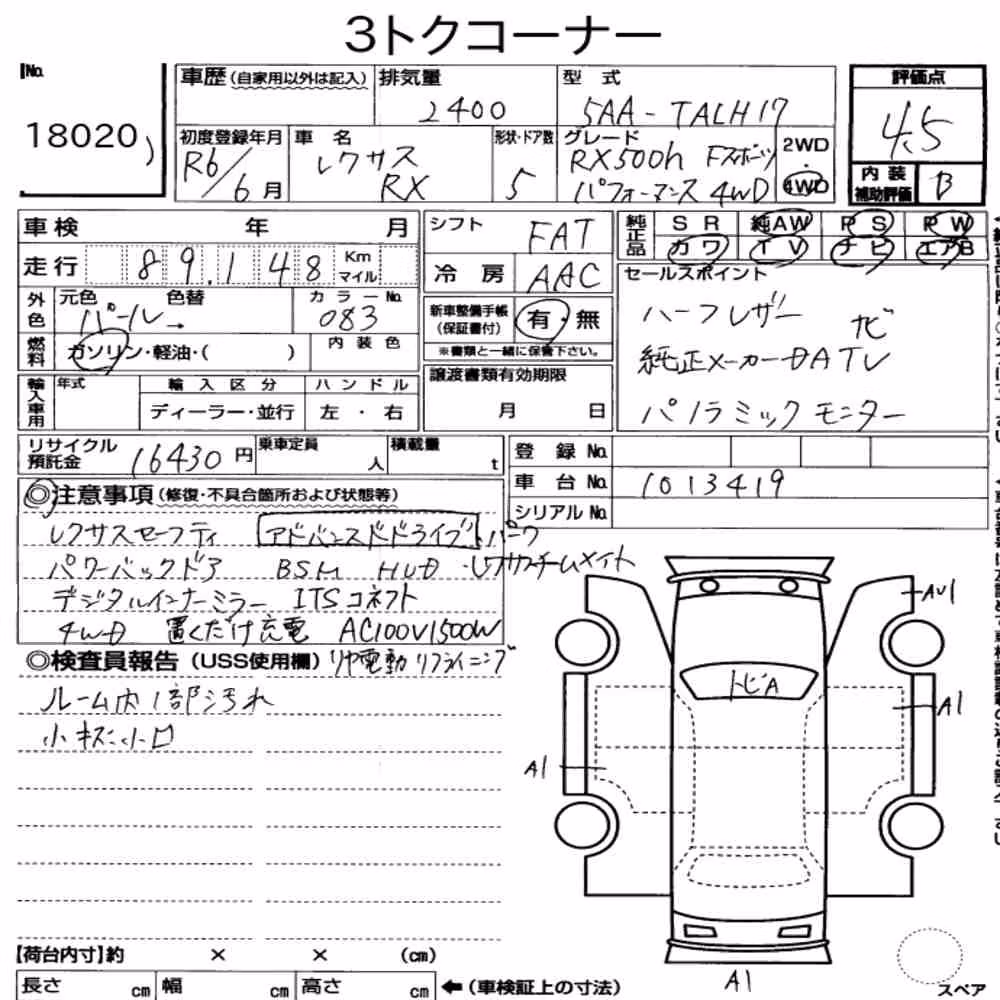 3トクコーナー
No.
18020
車歴 (自家用以外は記入)
排気量
2400
型式
5AA-TALH17
評価点
4.5
初度登録年月
R6/6月
車名
レクサス
RX
形状・ドア数
5
グレード
RX500h Fスポーツ
パフォーマンス 4WD
2WD
4WD
内装
補助評価
B
車検 年 月
走行 89,148 Km マイル
シフト
FAT
冷房
AAC
純正品
SR 純AW PS PW
カワ TV ナビ エアB
外色
元色 色替
パール→
カラーNo.
083
新車整備手帳
(保証書付)
有・無
※書類と一緒に保管下さい。
セールスポイント
ハーフレザー
ナビ
純正メーカーDATV
パノラミックモニター
燃料
ガソリン・軽油・( )
内装色
輸入車用
年式
輸入区分
ディーラー・並行
ハンドル
左・右
譲渡書類有効期限
月 日
リサイクル
預託金
16430円
乗車定員
人
積載量
t
登録No.
車台No.
1013419
シリアルNo.
◎注意事項 (修復・不具合箇所および状態等)
レクサスセーフティ アドバンスドドライブ パーク
パワーバックドア BSM HUD レクサスチームメイト
デジタルインナーミラー ITSコネクト
4WD 置くだけ充電 AC100V1500W
◎検査員報告 (USS使用欄) リヤ電動リクライニング
ルーム内1部汚れ
小キズ小凹
AU1
トビA
A1
A1
A1
【荷台内寸】約 × × (cm)
長さ cm 幅 cm 高さ cm ←(車検証上の寸法)
スペア